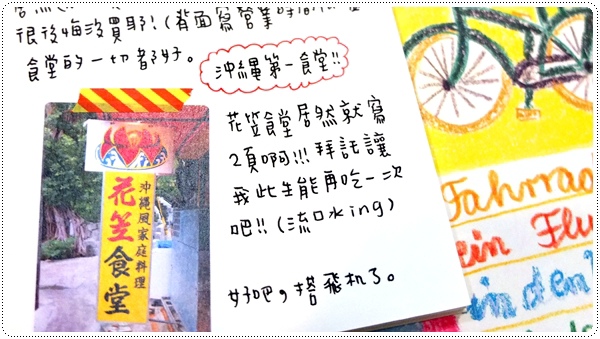 很後悔沒買耶!(背面寫營業時間
食堂的一切都好。
沖縄第一食堂!!
花笠食堂居然就寫
2頁啊!!!拜託讓
我此生能再吃一次
吧!!(流口水ing)
好吧,搭飛机了。
沖縄風家庭料理
花笠食堂
Fahrrad
ein Flu
in den